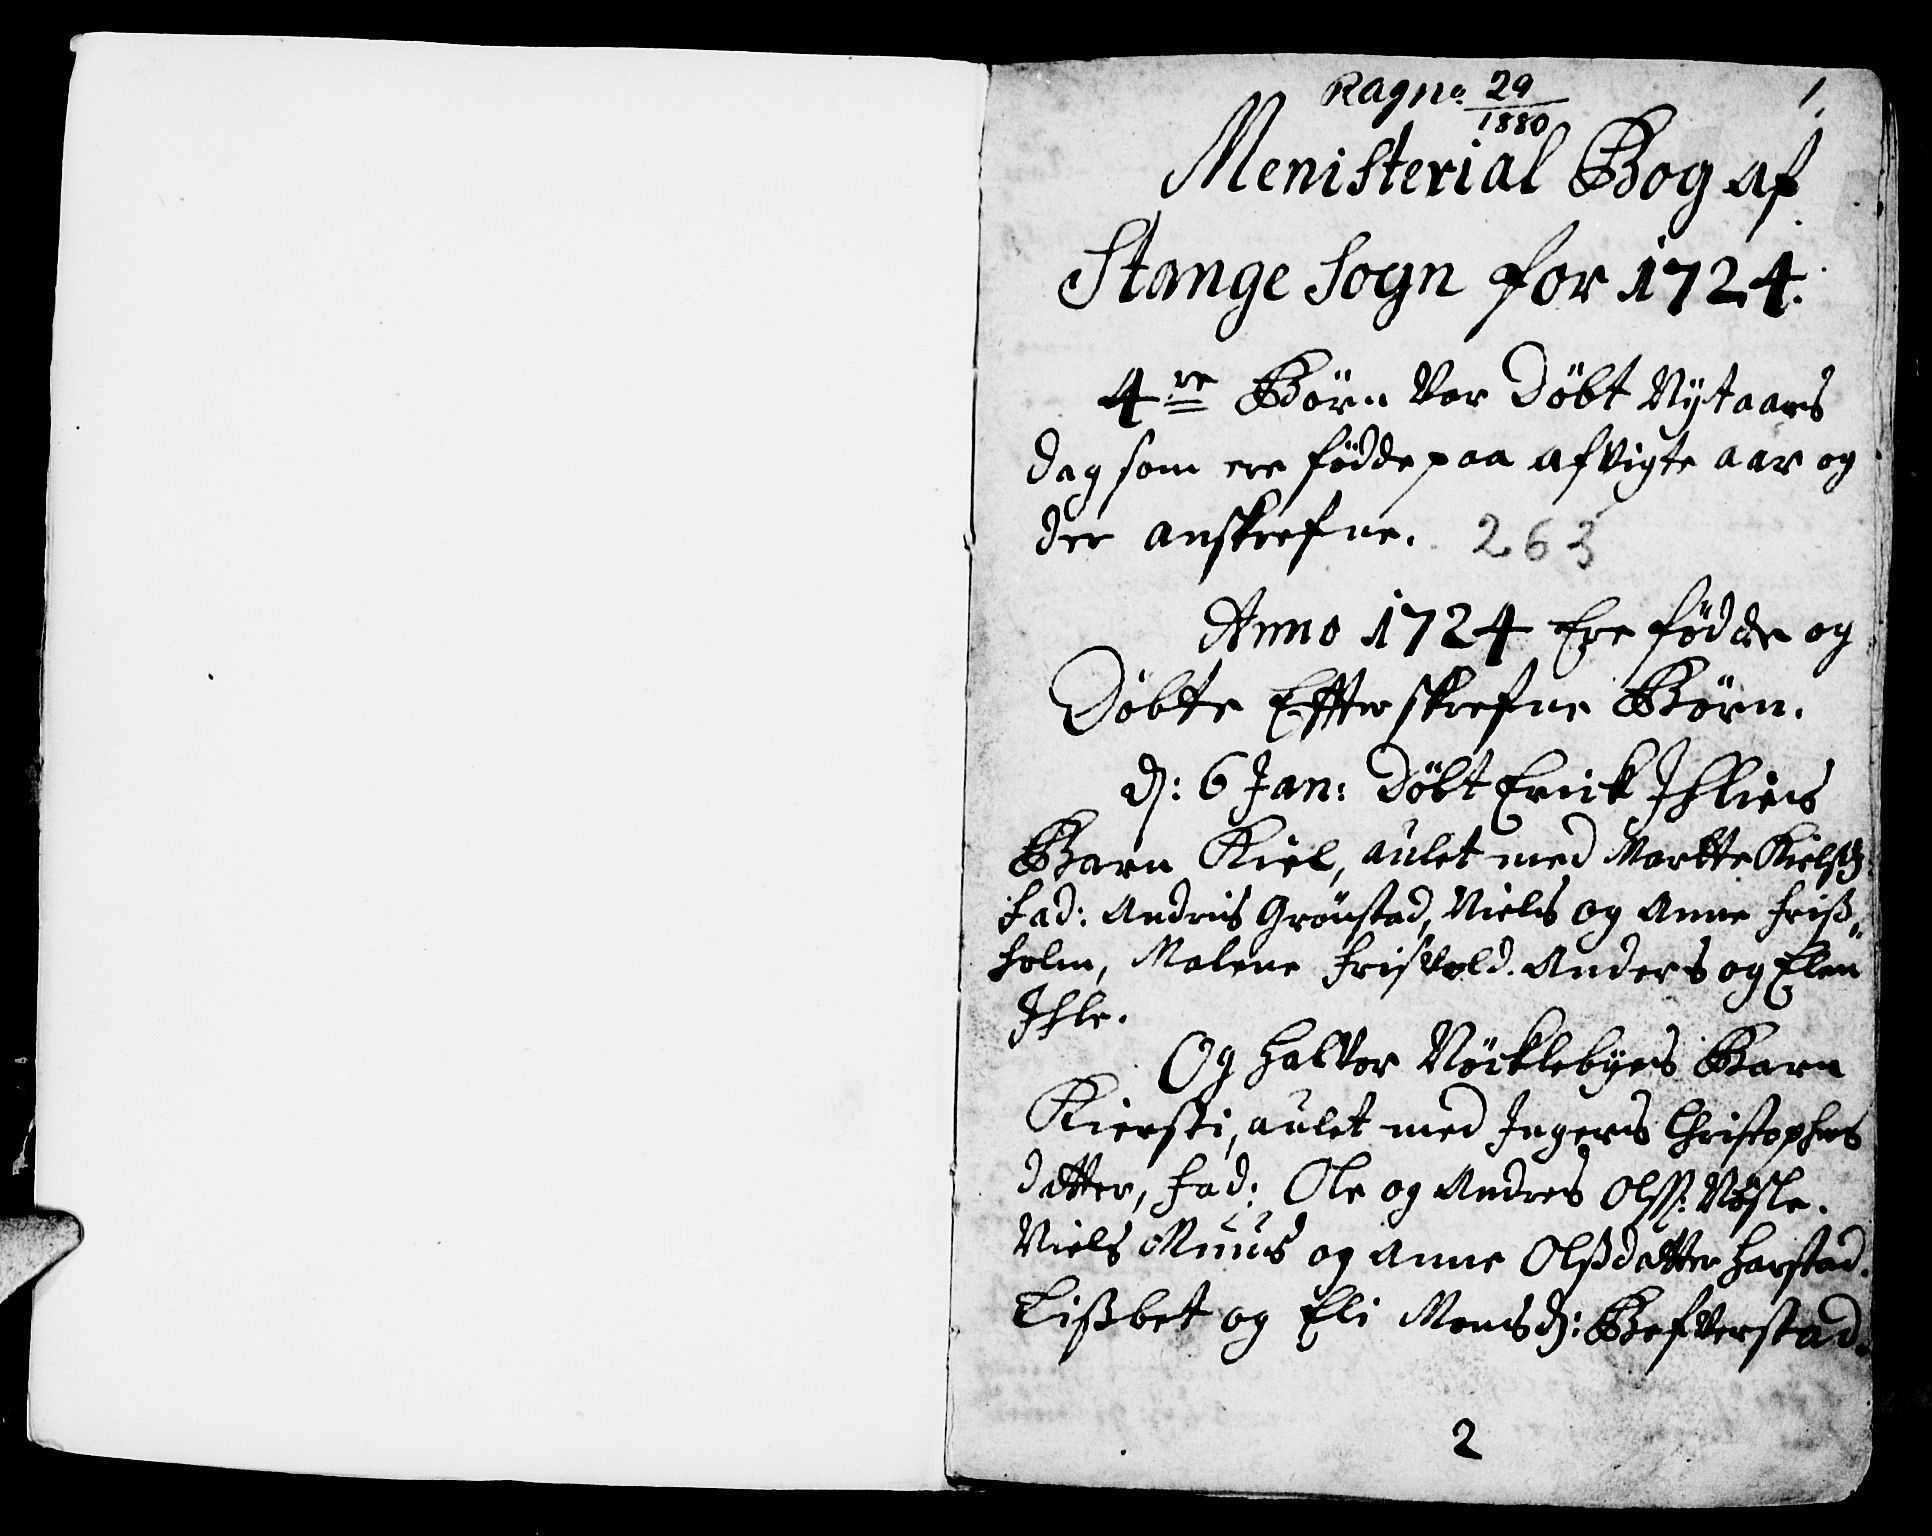 Ragn: 29/1880
1.
Menisterial Bog af
Stange Sogn for 1724.
4re Börn Var Döbt Nÿtaars
dag som ere födde paa afvigte aar og
der anskrefne. 263
Anno 1724 Ere födde og
Döbte Efter skrefne Börn.
D: 6 Jan: Döbt Erick Ihliens
Barn Kiel, aulet med Martte Kielsd:
Fad: Andris Grönstad, Niels og Anne Friß„
holm, Malene Frisvold. Anders og Elen
Ihle.
Og Halvor Nöcklebyes Barn
Kiersti, aulet med Ingers Christophers
datter, Fad: Ole og Andres Olss: Nösle.
Niels Muus og Anne Olßdatter Harstad.
Lißbet og Eli Monsd: Befverstad.
2